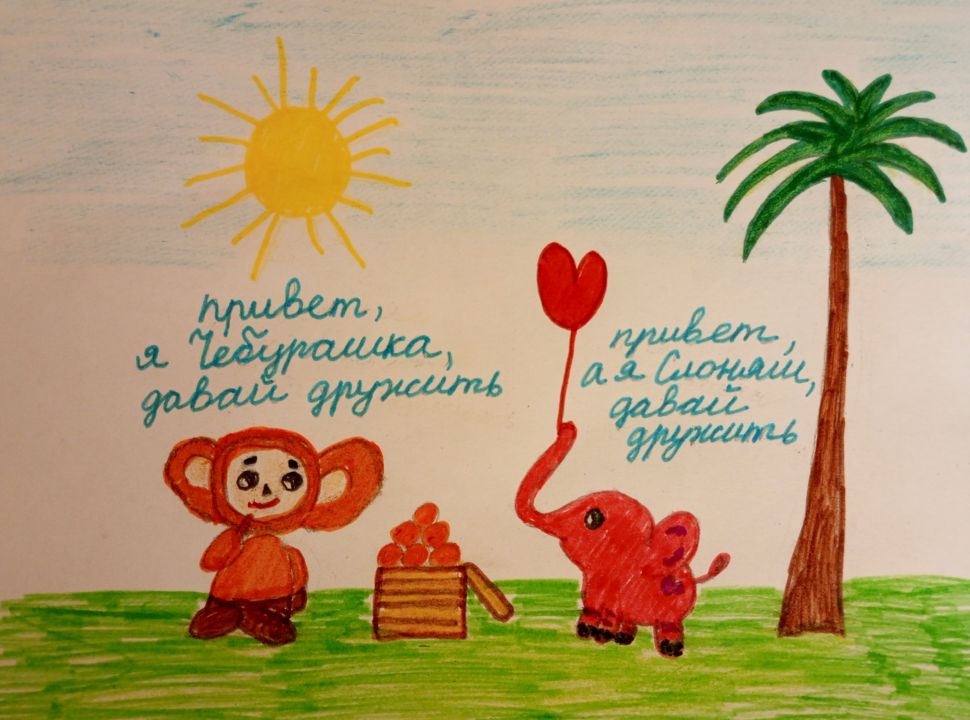 привет,
я Чебурашка,
давай дружить
привет,
а я Слоняш,
давай
дружить